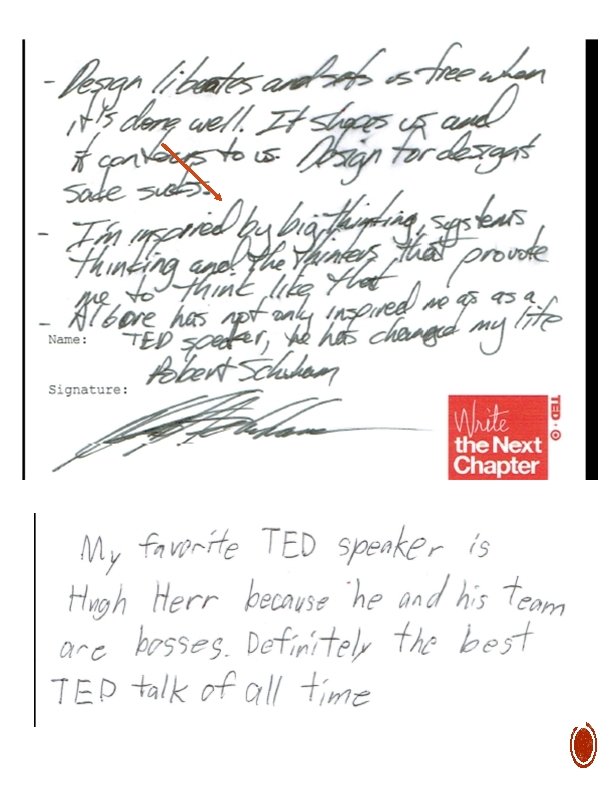 - Design liberates and sets us free when
it's done well. It shapes us and
it contours to us. Design for designs
sake sucks.
- I'm inspired by big thinking, systems
thinking and the thinkers that provoke
me to think like that
- Al Gore has not only inspired me as as a
Name: TED speaker, he has changed my life
Robert Schuham
Signature:
Write
the Next
Chapter
TED
My favorite TED speaker is
Hugh Herr because he and his team
are bosses. Definitely the best
TED talk of all time